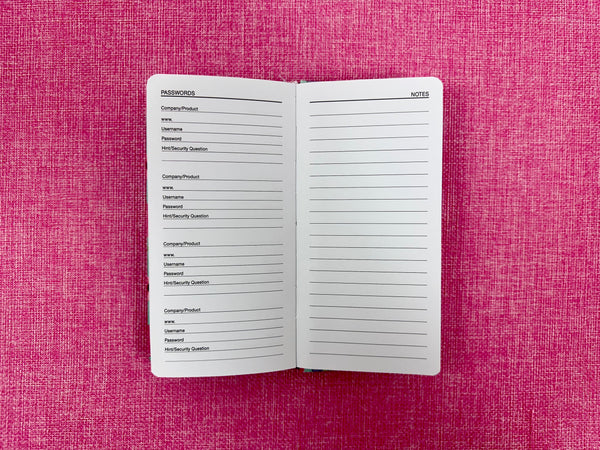 PASSWORDS
Company/Product
www.
Username
Password
Hint/Security Question
Company/Product
www.
Username
Password
Hint/Security Question
Company/Product
www.
Username
Password
Hint/Security Question
Company/Product
www.
Username
Password
Hint/Security Question
NOTES